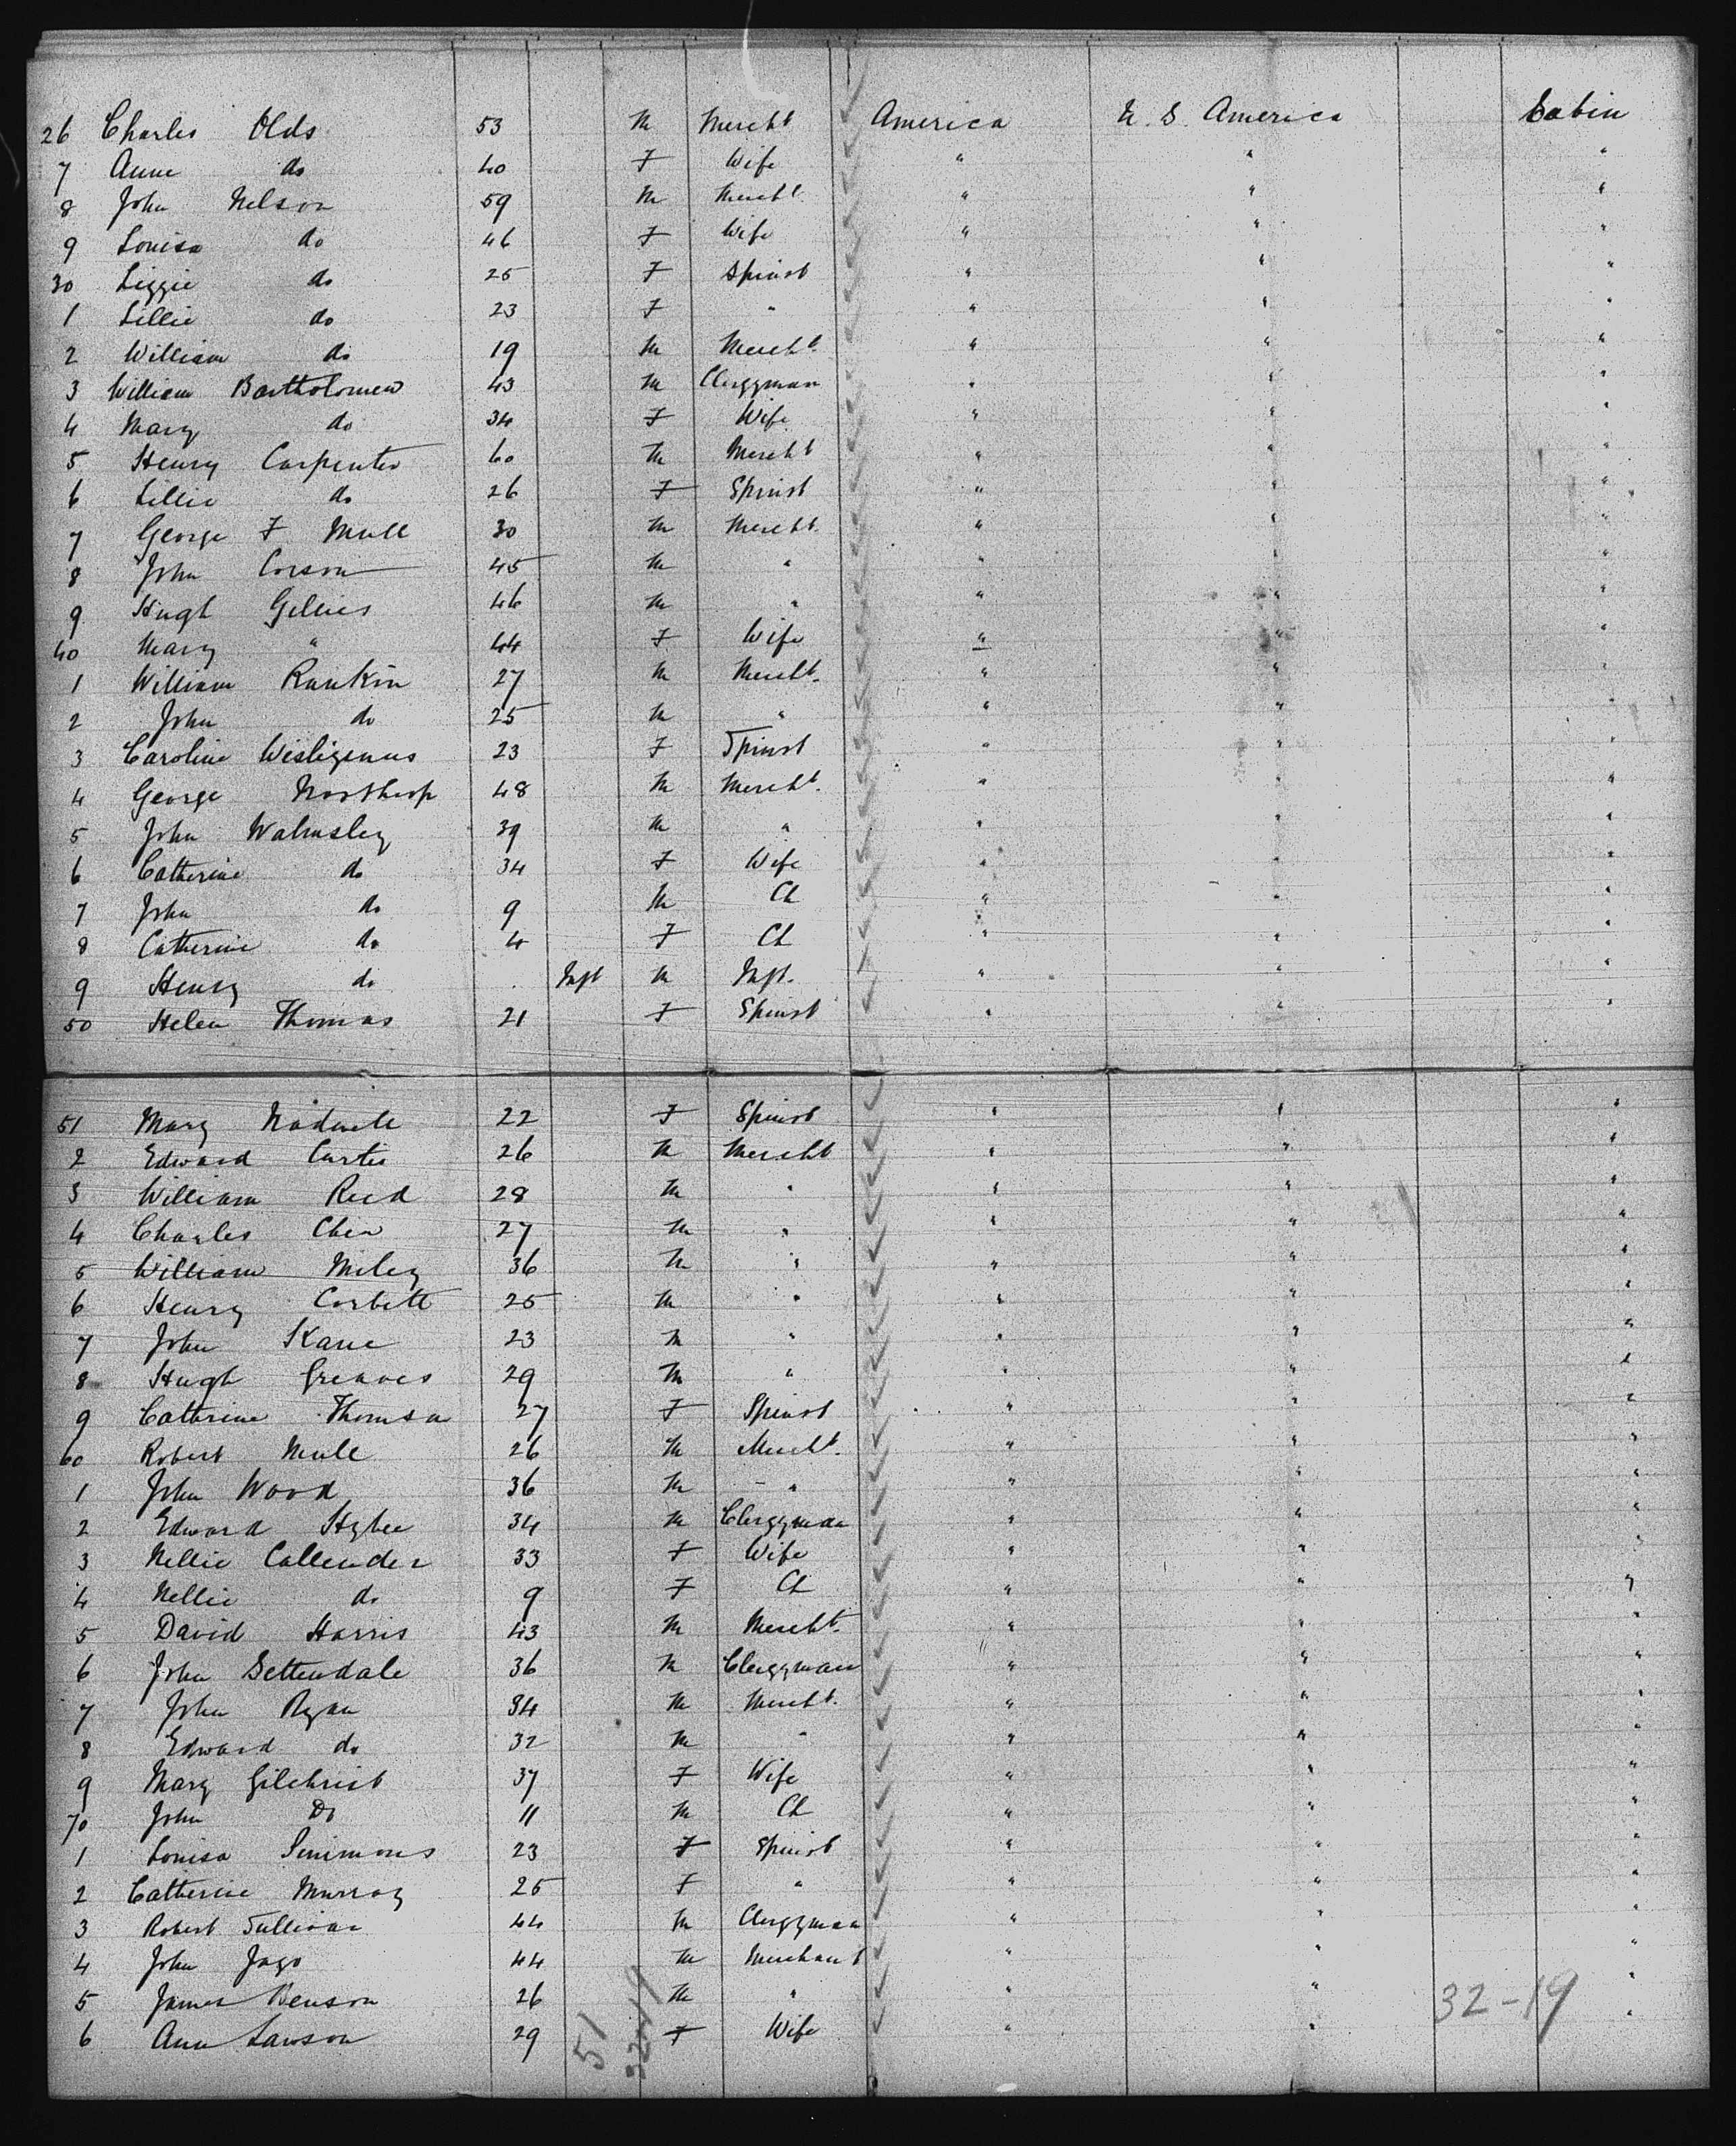 26 Charles Olds 53 M Mercht America U. S. America Cabin
7 Anne do 40 F Wife " " "
8 John Nelson 59 M Mercht " " "
9 Louisa do 46 F Wife " " "
30 Lizzie do 25 F Spinst " " "
1 Lillie do 23 F " " " "
2 William do 19 M Mercht. " " "
3 William Bartholomew 43 M Clergyman " " "
4 Mary do 34 F Wife " " "
5 Henry Carpenter 60 M Mercht " " "
6 Lillie do 26 F Spinst " " "
7 George F Mull 30 M Mercht. " " "
8 John Corson 45 M " " " "
9 Hugh Gillies 46 M " " " "
40 Mary " 44 F Wife " " "
1 William Rankin 27 M Mercht. " " "
2 John do 25 M " " " "
3 Caroline Wislizenus 23 F Spinst " " "
4 George Northrop 48 M Mercht. " " "
5 John Walmsley 39 M " " " "
6 Catherine do 34 F Wife " " "
7 John do 9 M Ch " " "
8 Catherine do 4 F Ch " " "
9 Henry do Inft M Inft. " " "
50 Helen Thomas 21 F Spinst " " "
51 Mary 22 F Spinst " " "
2 Edward Curtis 26 M Mercht " " "
3 William Reed 28 M " " " "
4 Charles 27 M " " " "
5 William Miley 36 M " " " "
6 Henry Corbett 25 M " " " "
7 John Kane 23 M " " " "
8 Hugh Greaves 29 M " " " "
9 Cathrine Thomson 27 F Spinst " " "
60 Robert Mull 26 M Mercht. " " "
1 John Wood 36 M " " " "
2 Edward 34 M Clergyman " " "
3 Nellie Callender 33 F Wife " " "
4 Nellie do 9 F Ch " " "
5 David Harris 43 M Mercht. " " "
6 John Settendale 36 M Clergyman " " "
7 John Ryan 34 M Mercht. " " "
8 Edward do 32 M " " " "
9 Mary Gilchrist 37 F Wife " " "
70 John Do 11 M Ch " " "
1 Louisa Simmons 23 F Spinst " " "
2 Catherine Murray 25 F " " " "
3 Robert Sullivan 44 M Clergyman " " "
4 John Jago 44 M Merchant " " "
5 James Benson 26 M " " " "
6 Ann Lawson 29 F Wife " " "
32-19
51